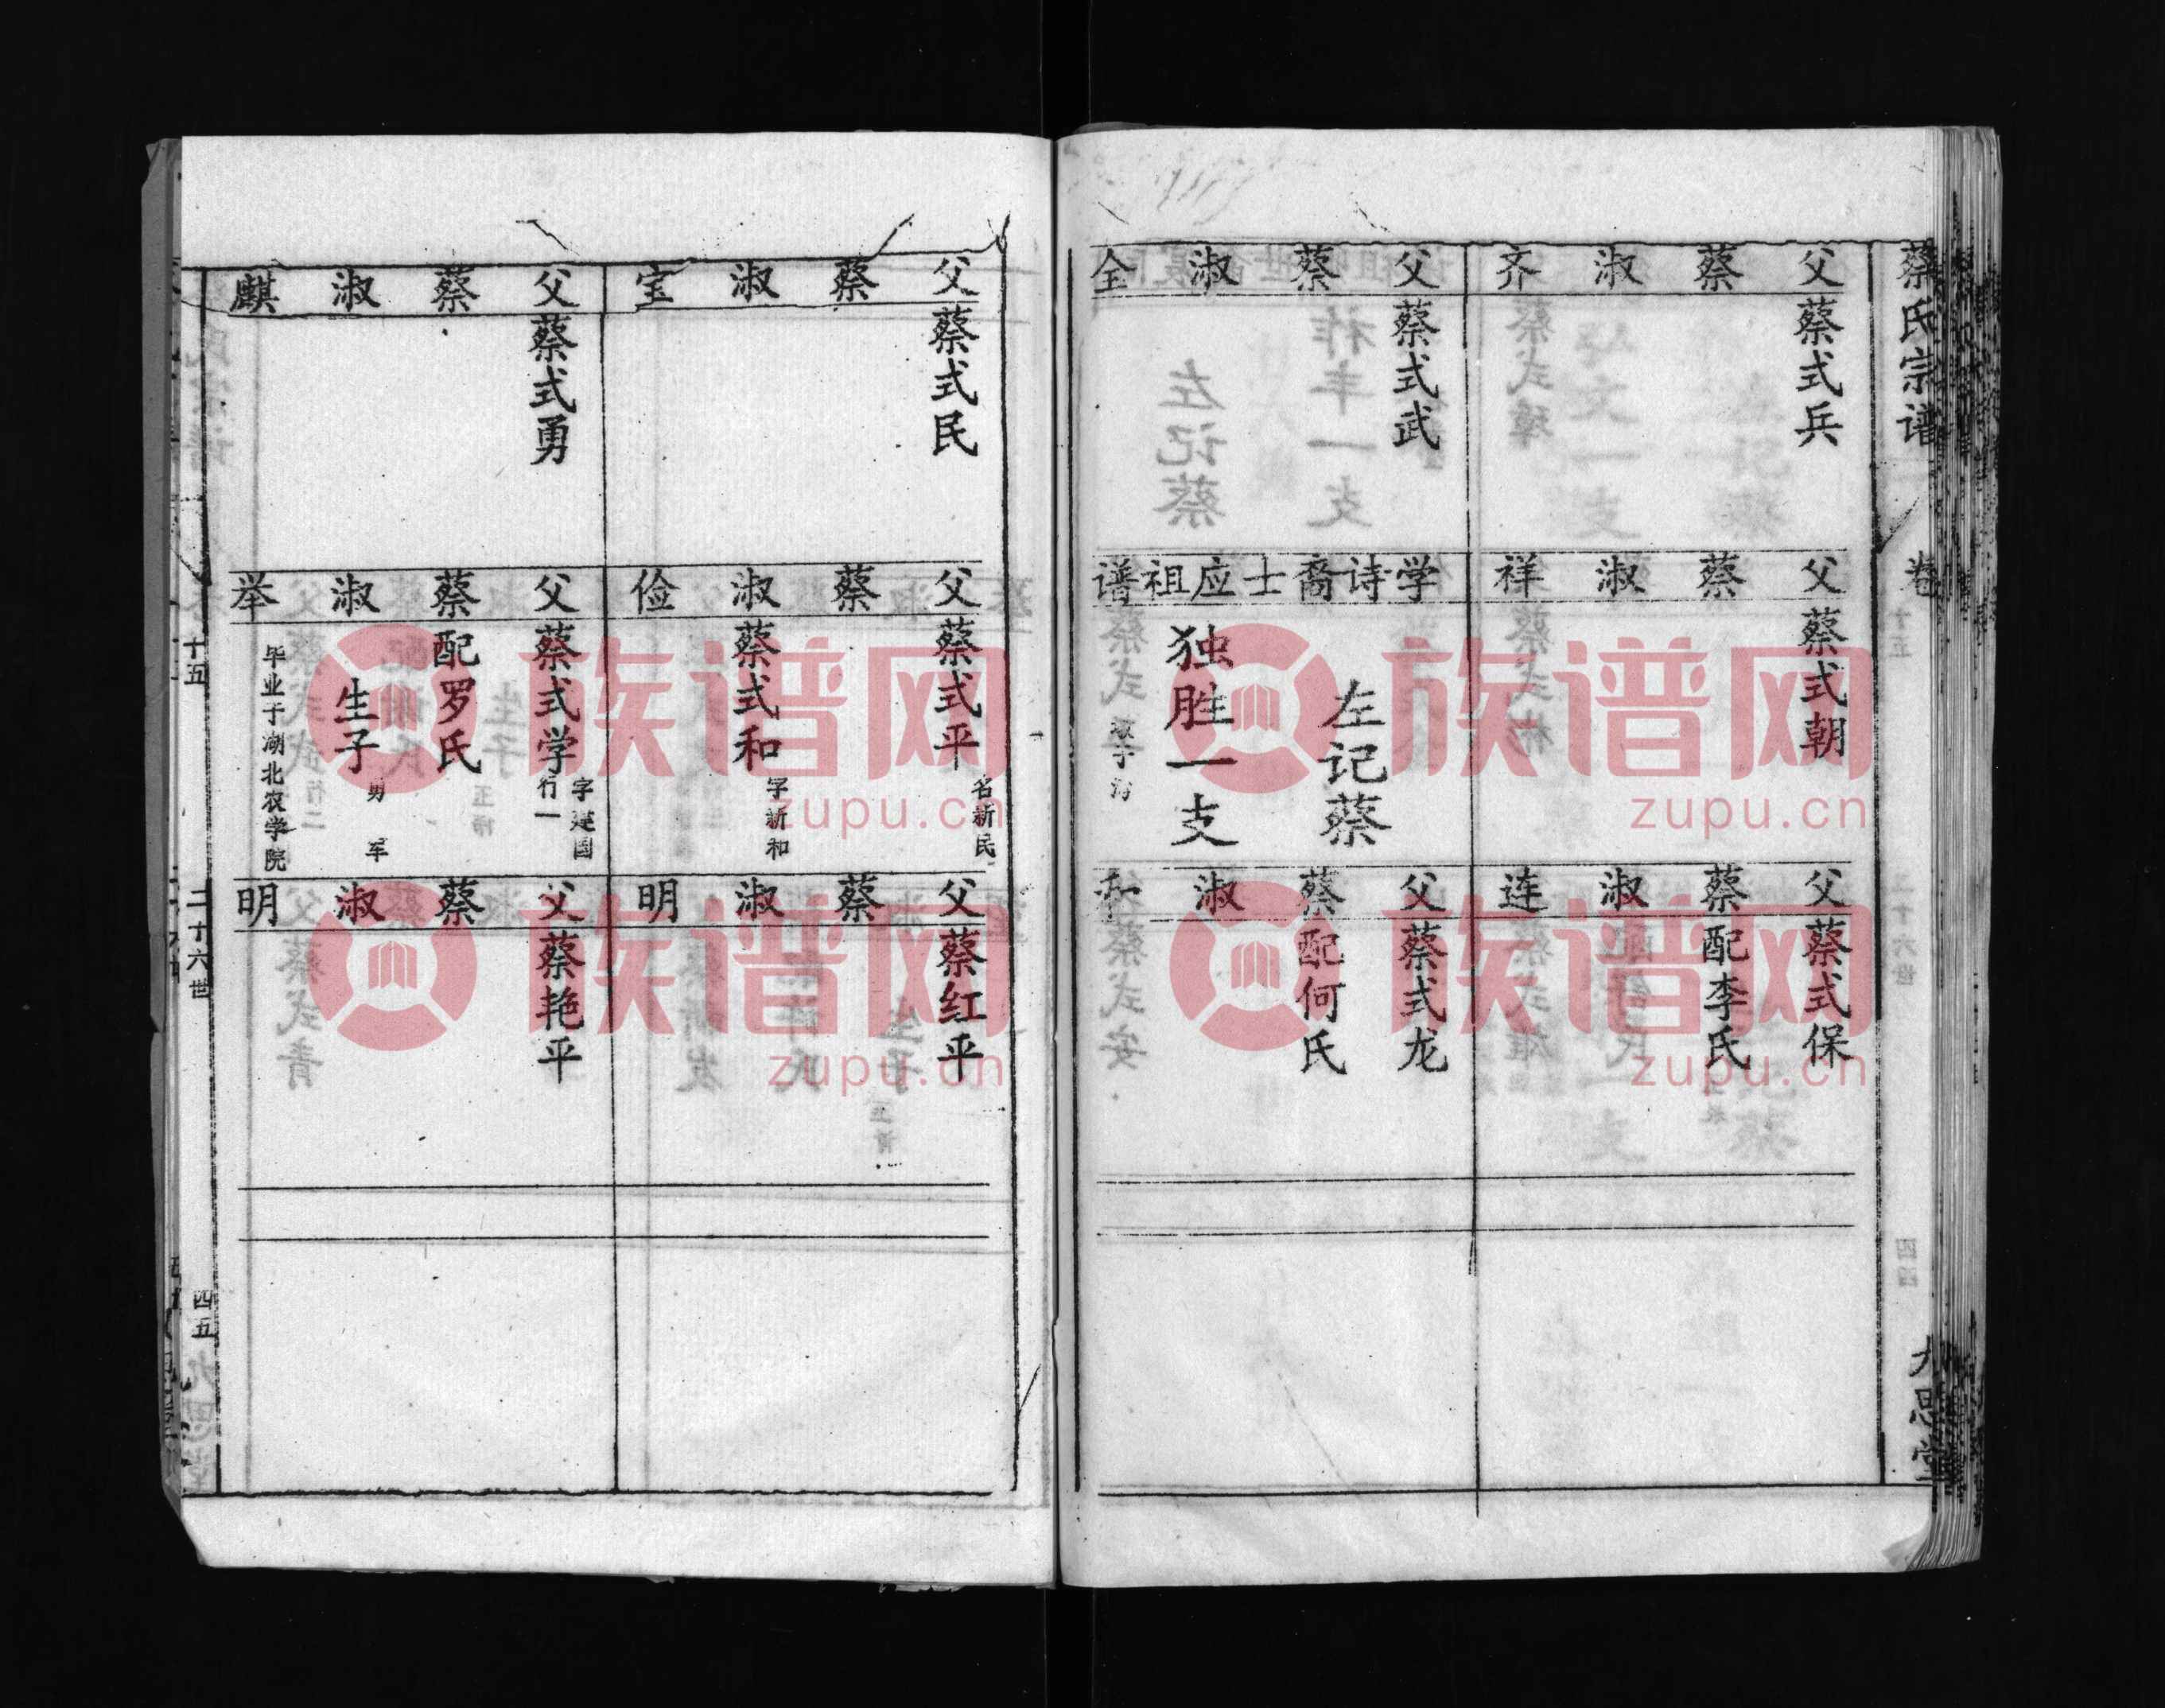 蔡氏宗谱
卷
九思堂
父蔡淑齐
蔡式兵
父蔡淑全
蔡式武
父蔡淑祥
蔡式朝
学诗裔士应祖谱
左记蔡
独胜一支
父蔡淑连
蔡式保
配李氏
父蔡淑和
蔡式龙
配何氏
父蔡淑宝
蔡式民
父蔡淑麒
蔡式勇
父蔡淑俭
蔡式平
名新民
蔡式和
字新和
父蔡淑举
蔡式学
字建国
行一
配罗氏
生子
勇 军
毕业于湖北农学院
父蔡淑明
蔡红平
父蔡淑明
蔡艳平
十五
二十六世
四五
族谱网
zupu.cn
族谱网
zupu.cn
族谱网
zupu.cn
族谱网
zupu.cn